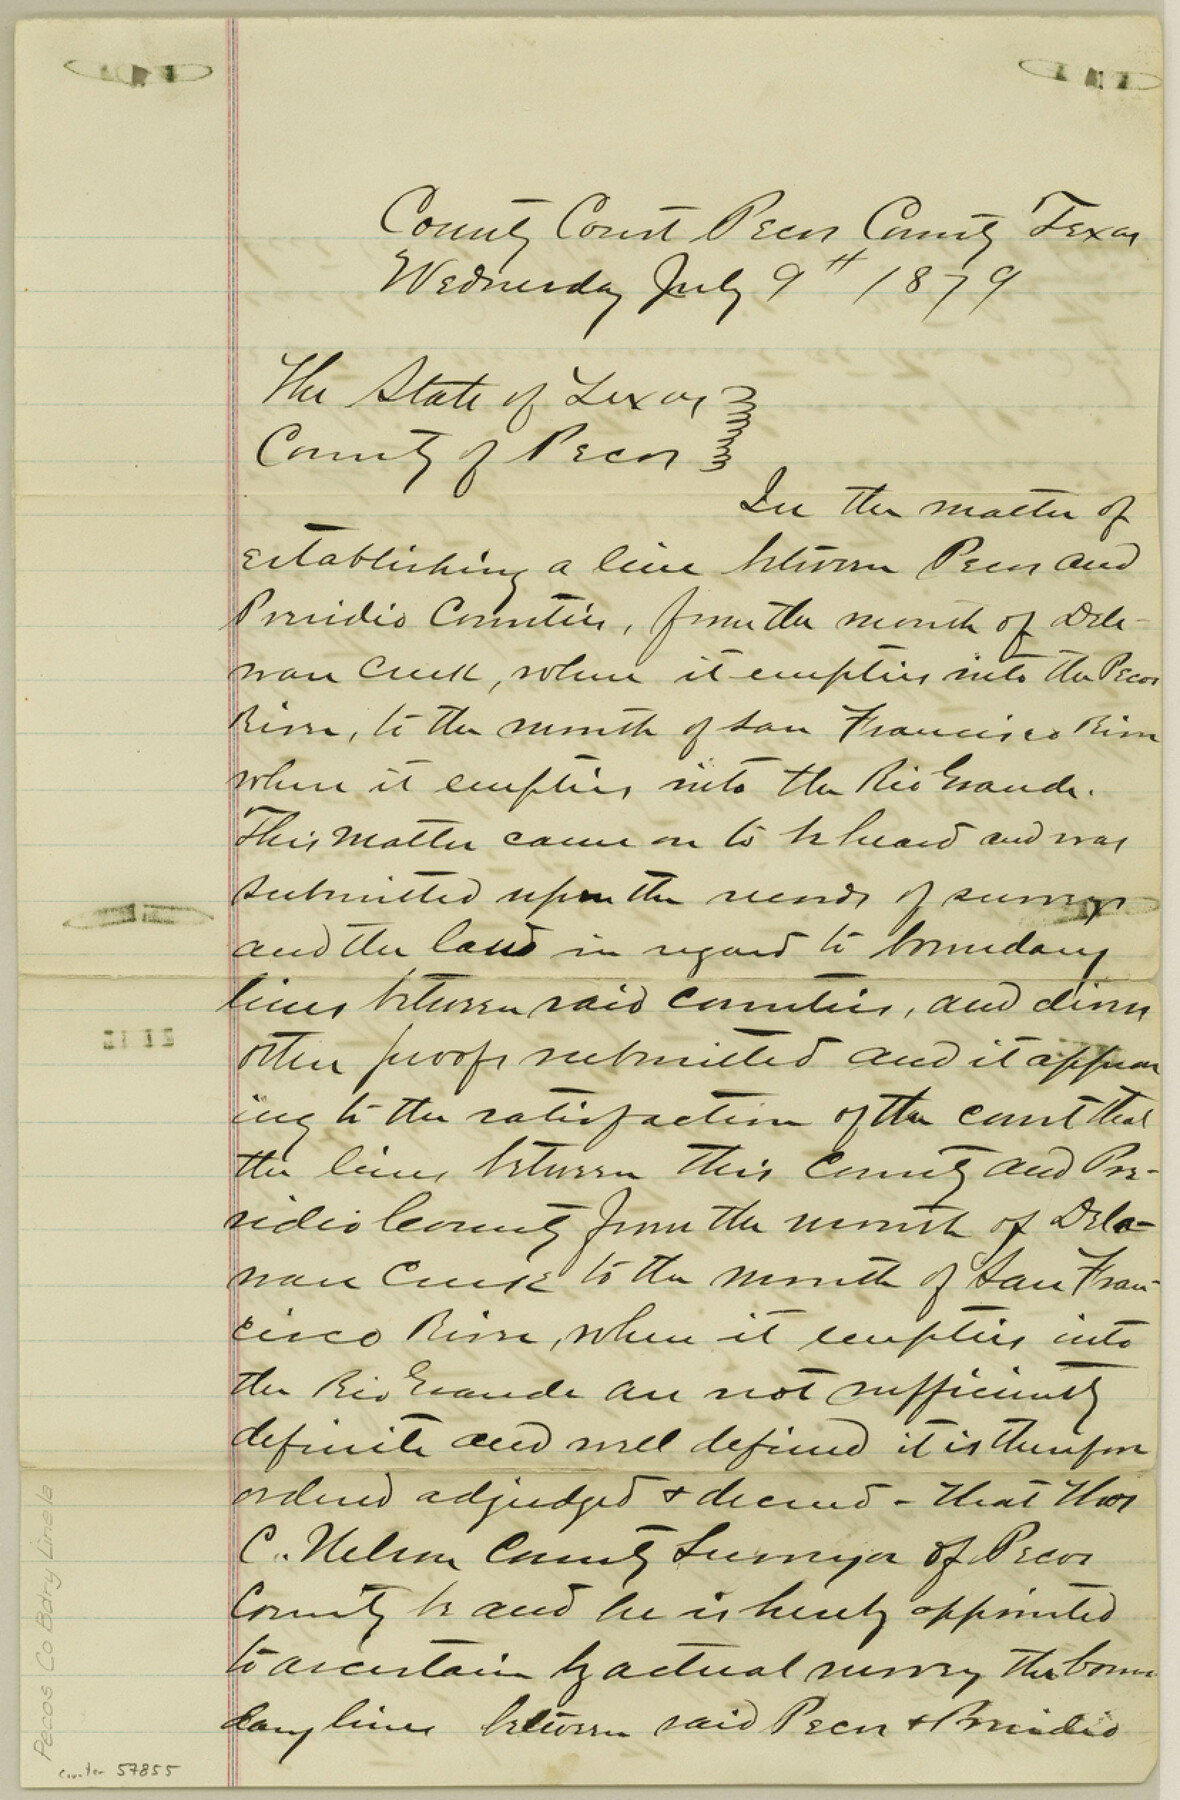 County Court Pecos County Texas
Wednesday July 9th 1879
The State of Texas
County of Pecos
In the matter of
establishing a line between Pecos and
Presidio Counties, from the mouth of Dela-
ware Creek, where it empties into the Pecos
River, to the mouth of San Francisco River
where it empties into the Rio Grande.
This matter came on to be heard and was
submitted upon the records of surveys
and the laws in regard to boundary
lines between said Counties, and divers
other proofs submitted and it appear
ing to the satisfaction of the court that
the lines between this County and Pre-
sidio County from the mouth of Dela-
ware Creek to the mouth of San Fran-
cisco River, where it empties into
the Rio Grande are not sufficiently
definite and well defined it is therefore
ordered adjudged & decreed - that Thos
C. Nelson County Surveyor of Pecos
County be and he is hereby appointed
to ascertain by actual survey the boun
dary lines between said Pecos & Presidio
Pecos Co Bdry Line 1e
counter 57855